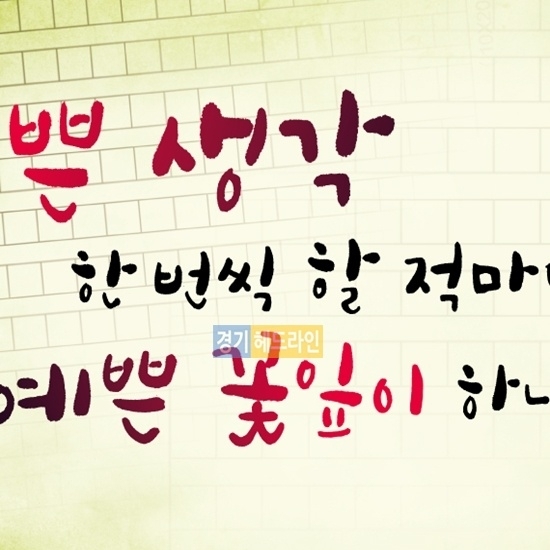 쁜 생각
한 번씩 할 적마
경기헤드라인
예쁜 꽃잎이 하나